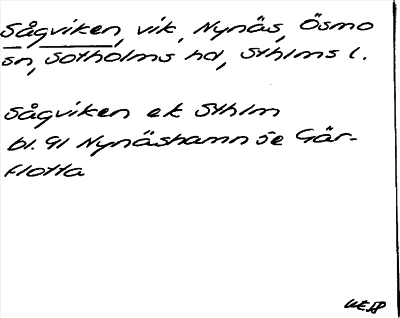 Sågviken, vik, Nynäs, Ösmo
sn, Sotholms hd, Sthlms l.
Sågviken ek Sthlm
bl. 91 Nynäshamn 5e Går-
flotta